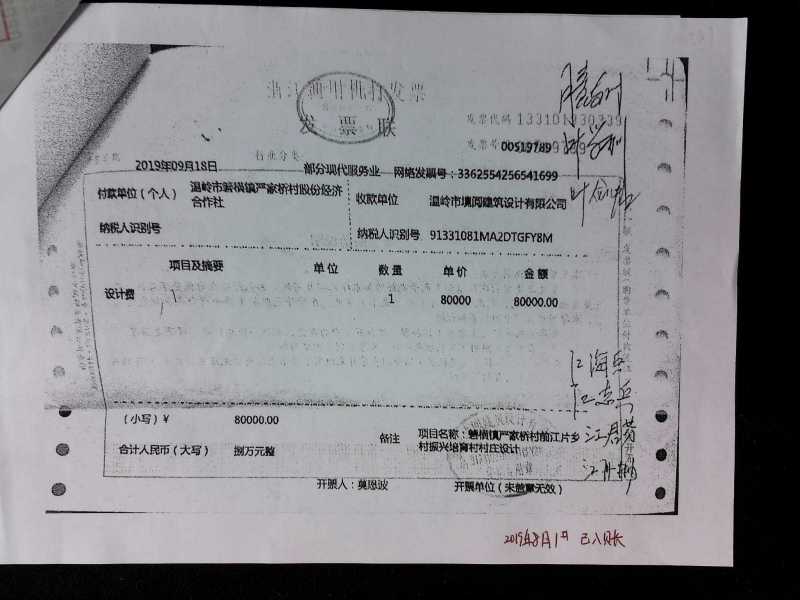 浙江通用机打发票
发票联
发票代码 133101930339
发票号 00519789
2019年09月18日 行业分类 部分现代服务业 网络发票号:3362554256541699
付款单位(个人) 温岭市箬横镇严家桥村股份经济合作社
收款单位 温岭市壎阅建筑设计有限公司
纳税人识别号
纳税人识别号 91331081MA2DTGFY8M
项目及摘要 单位 数量 单价 金额
设计费 1 80000 80000.00
(小写)¥ 80000.00
合计人民币(大写) 捌万元整
备注 项目名称:箬横镇严家桥村前江片乡
村振兴培育村村庄设计
开票人:莫恩波 开票单位(未盖章无效)
江海兵
江志兵
江君芳
2019年8月1日 已入账